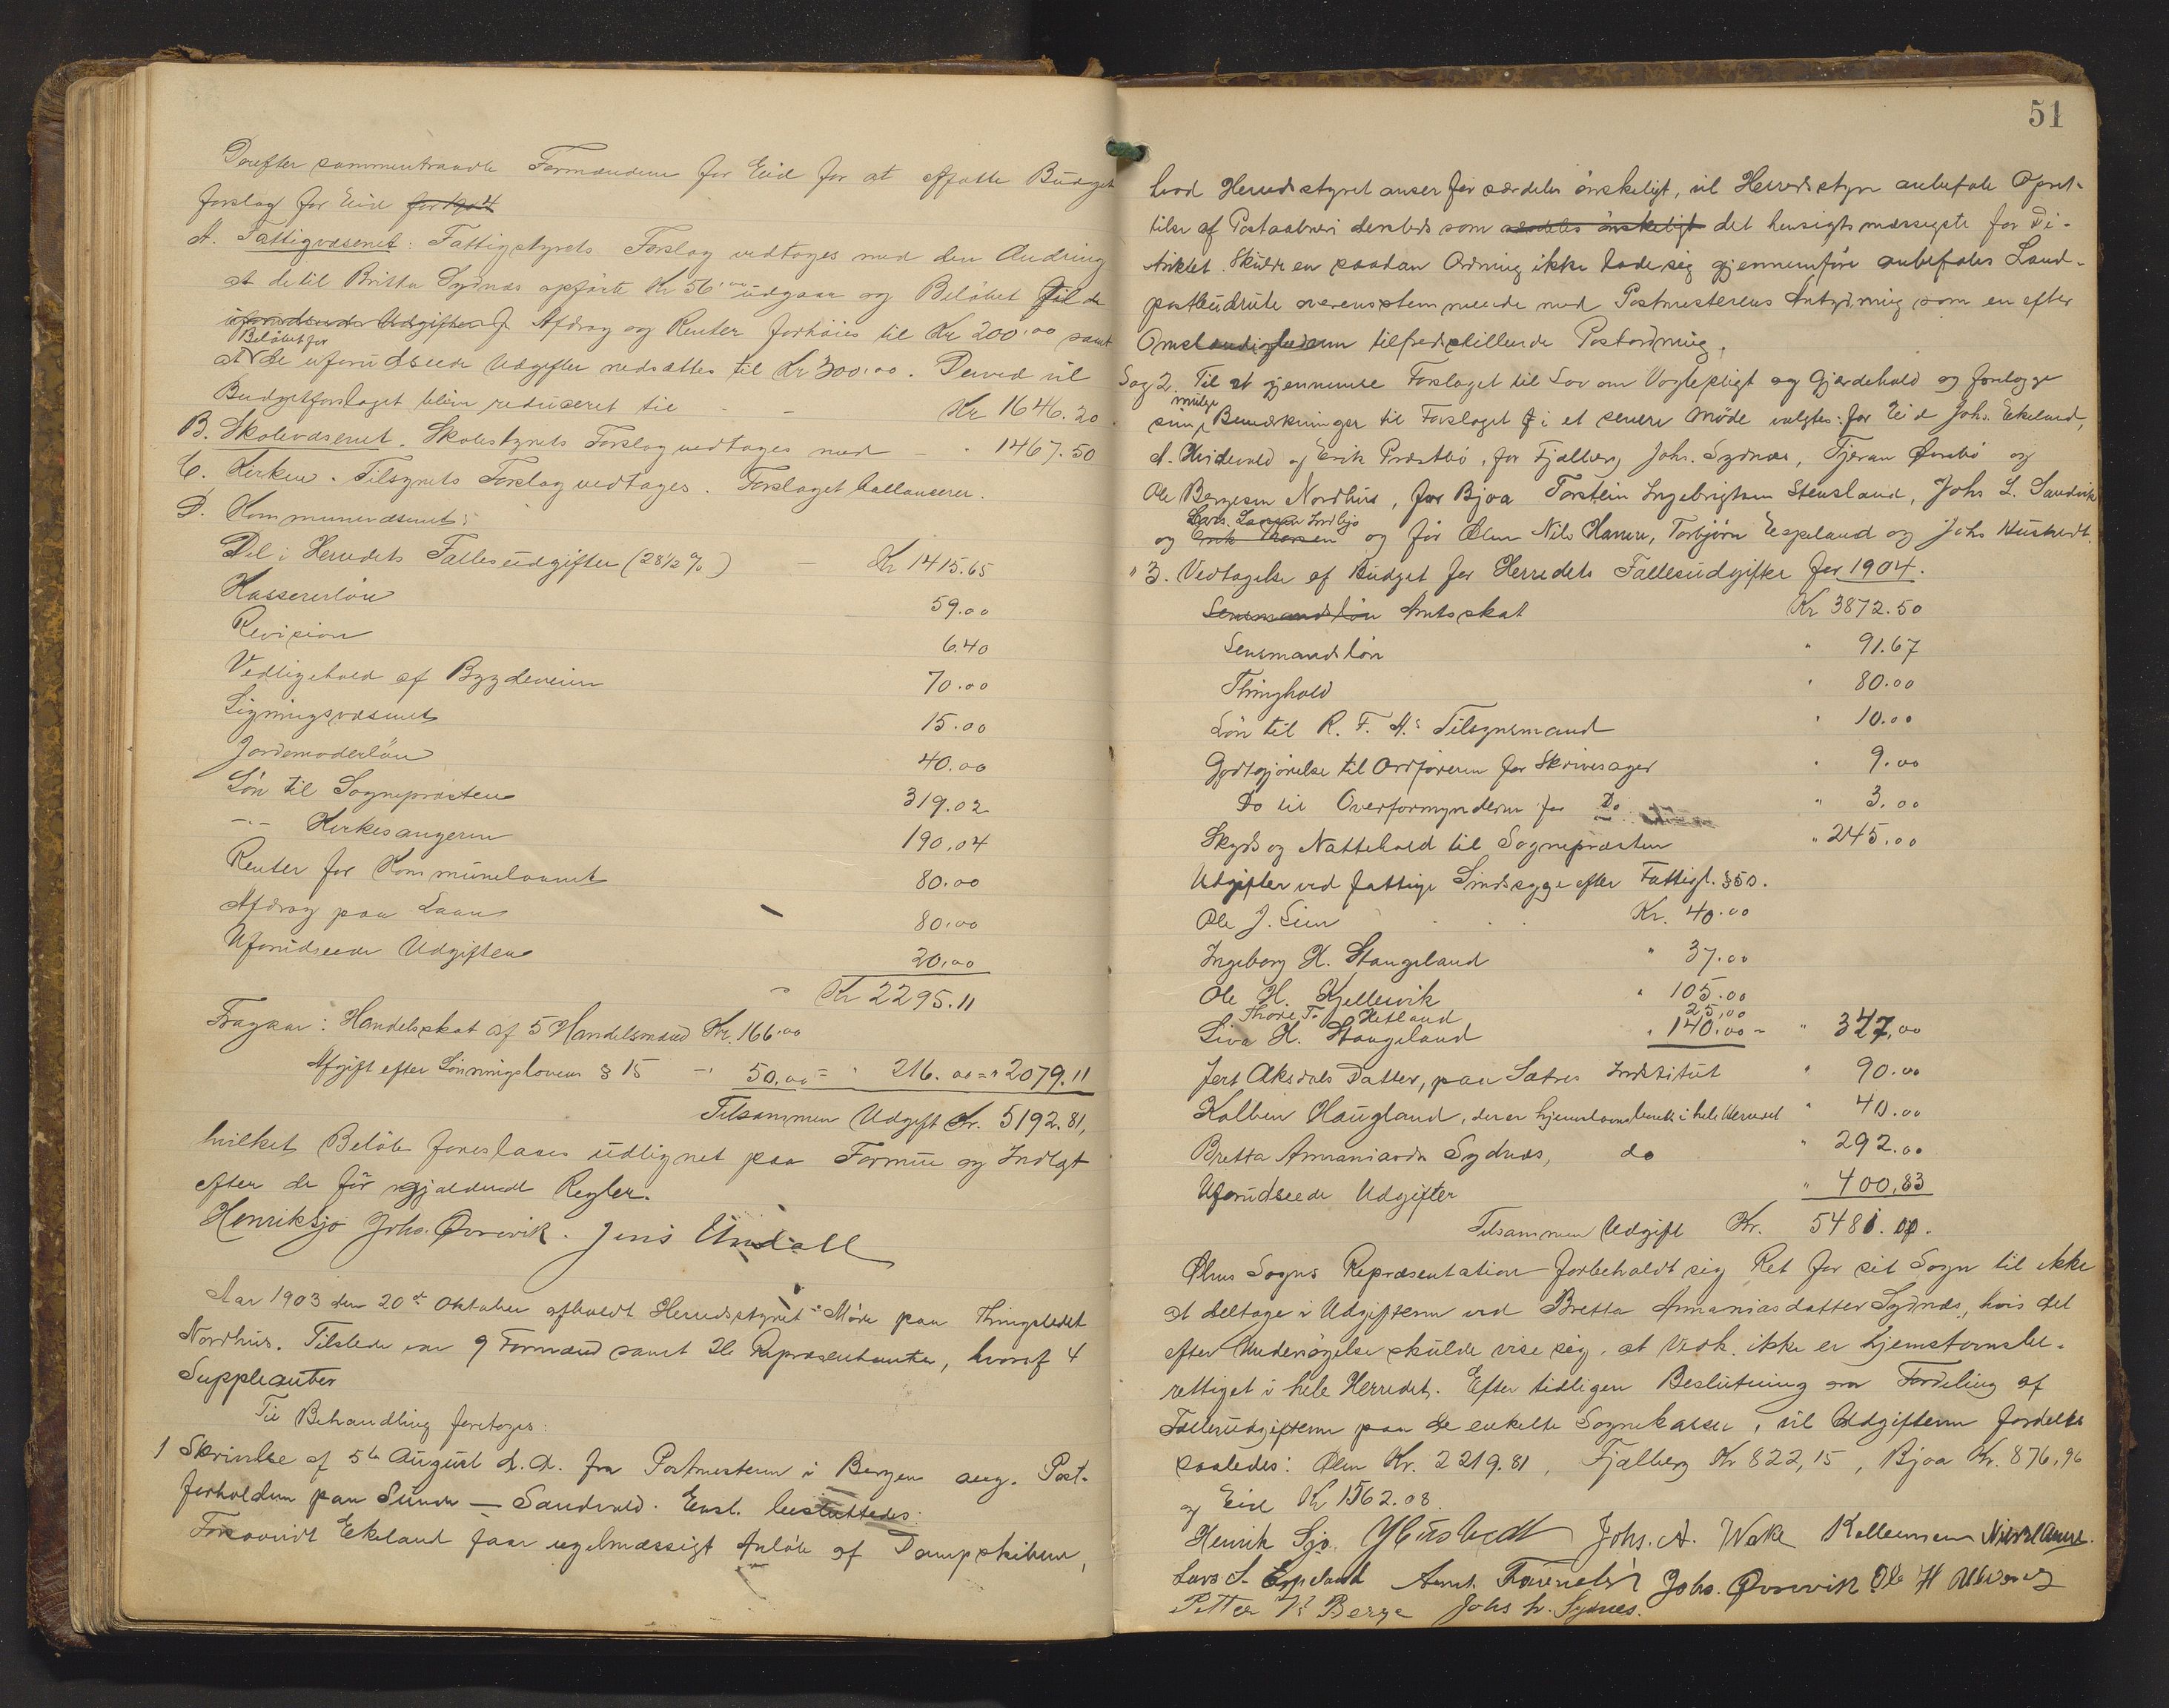 Derefter sammentraadte Formændene for Eid for at affatte Budget
forslag for Eid for 1904
A. Fattigvæsenet: Fattigstyrets Forslag vedtages med den Ændring
at de til Britta Sydnæs opførte Kr 56.00 udgaar og Beløbet til de
uforudseede Udgifter J. Afdrag og Renter forhøies til Kr 200.00 samt
Beløbet for
at de uforudseede Udgifter nedsættes til Kr 300.00. Derved vil
Budgetforslaget blive reduceret til - - Kr 1646.20
B. Skolevæsenet. Skolestyrets Forslag vedtages med - " 1467.50
C. Kirken. Tilsynets Forslag vedtages. Forslaget ballancerer.
D. Kommunevæsenet:
Del i Herredets Fællesudgifter (28 1/2 %) - Kr 1415.65
Kassererløn 59.00
Revision 6.40
Vedligehold af Bygdeveien 70.00
Ligningsvæsenet 15.00
Jordemoderløn 40.00
Løn til Sognepresten 319.02
-"- Kirkesangeren 190.04
Renter for Kommunelaanet 80.00
Afdrag paa Laan 80.00
Uforudseede Udgifter 20.00
Kr 2295.11
Fragaar: Handelsskat af 5 Handelsmænd Kr. 166.00
Afgift efter Lønningsloven § 15 - 50.00 = " 216.00 = " 2079.11
Tilsammen Udgift Kr. 5192.81,
hvilket Beløb foreslaaes udlignet paa Formue og Indtægt
efter de før gjældende Regler.
Henrik Sjo Johs. Øvrevik. Jens Undall
Aar 1903 den 20de Oktober afholdt Herredsstyret Møde paa Thingstedet
Nordhus. Tilstede var 9 Formænd samt 26 Repræsentanter, hvoraf 4
Suppleanter
Til Behandling foretoges:
1 Skrivelse af 5te August d. A. fra Postmesteren i Bergen ang. Post-
forholdene paa Sunde — Sandvold. Enst. besluttedes:
Forsaavidt Ekeland faar regelmæssigt Anløb af Dampskibene,
51
hvad Herredsstyret anser for særdeles ønskeligt, vil Herredsstyre anbefale Opret-
telse af Postaabneri dersteds som særdeles ønskeligt det hensigtsmæssigste for Di-
striktet. Skulde en saadan Ordning ikke lade sig gjennemføre anbefales Land-
postbudrute overensstemmende med Postmesterens Antydning som en efter
Omstændighederne tilfredsstillende Postordning.
Sag 2. Til at gjennemse Forslaget til Lov om Vogtepligt og Gjærdehold og forelægge
mulige
sine Bemærkninger til Forslaget i et senere Møde valgtes: for Eid Johs. Ekeland,
A. Heidevold og Erik Præstbø, for Fjælberg Johs. Sydnæs, Tjeran Øvrebø og
Ole Bergesen Nordhus, for Bjoa Torstein Ingebrigtsen Stensland, Johs L. Sandvik
Lars Larsen Indbjo
og Erik Thorsen og for Ølen Nils Hamre, Torbjørn Espeland og Johs Husstvedt.
" 3. Vedtagelse af Budget for Herredets Fællesudgifter for 1904.
Lensmandsløn Amtsskat Kr 3872.50
Lensmandsløn " 91.67
Thinghold " 80.00
Løn til R. F. A.s Tilsynsmand " 10.00
Godtgjørelse til Ordføreren for Skrivesager " 9.00
Do til Overformynderen for Do " 3.00
Skyds og Nattehold til Sognepræsten " 245.00
Udgifter ved fattige Sindssyge efter Fattigl. § 50.
Ole J. Lien Kr. 40.00
Ingeborg H. Stangeland " 37.00
Ole H. Kjellesvik " 105.00
Thore T. Hetland 25.00
Siva H. Stangeland " 140.00 - " 347.00
Jert Aksdals Datter, paa Sætres Institut " 90.00
Kolben Haugland, der er hjemstavnsberet. i hele Herredet " 40.00
Bretta Ammaniasdr Sydnæs, do " 292.00
Uforudseede Udgifter " 400,83
Tilsammen Udgift Kr. 5481.00.
Ølens Sogns Repræsentation forbeholdt sig Ret for sit Sogn til ikke
at deltage i Udgifterne ved Bretta Ammaniasdatter Sydnæs, hvis det
efter Undersøgelse skulde vise sig, at Vedk. ikke er hjemstavnsbe-
rettiget i hele Herredet. Efter tidligere Beslutning om Fordeling af
Fællesudgifterne paa de enkelte Sognekasser, vil Udgifterne fordeles
saaledes: Ølen Kr. 2219.81, Fjælberg Kr 822,15, Bjoa Kr. 876,96
og Eid Kr 1562.08.
Henrik Sjo. JHusstvedt Johs. A. Wake Nils Hamre.
Lars S. Espeland Johs. Øvrevik Ole H
Petter Berge Johs L. Sydnes.